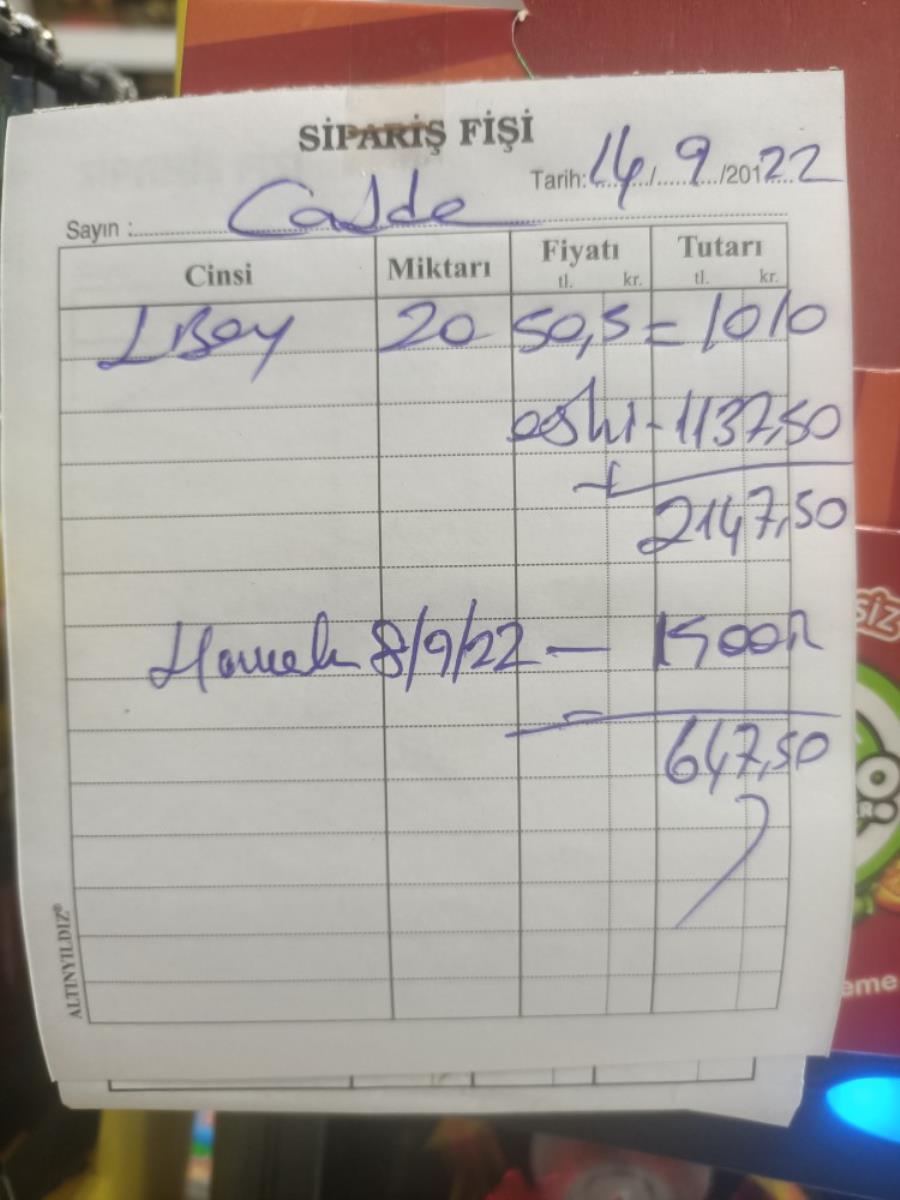 SİPARİŞ FİŞİ
Tarih: 14/9/20122
Sayın : Cadde
Cinsi Miktarı Fiyatı tl. kr. Tutarı tl. kr.
LBey 20 50,5 = 1010
eski - 1137,50
+
2147,50
8/9/22 — 1500
-
647,50
ALTINYILDIZ®
SİZ
eme